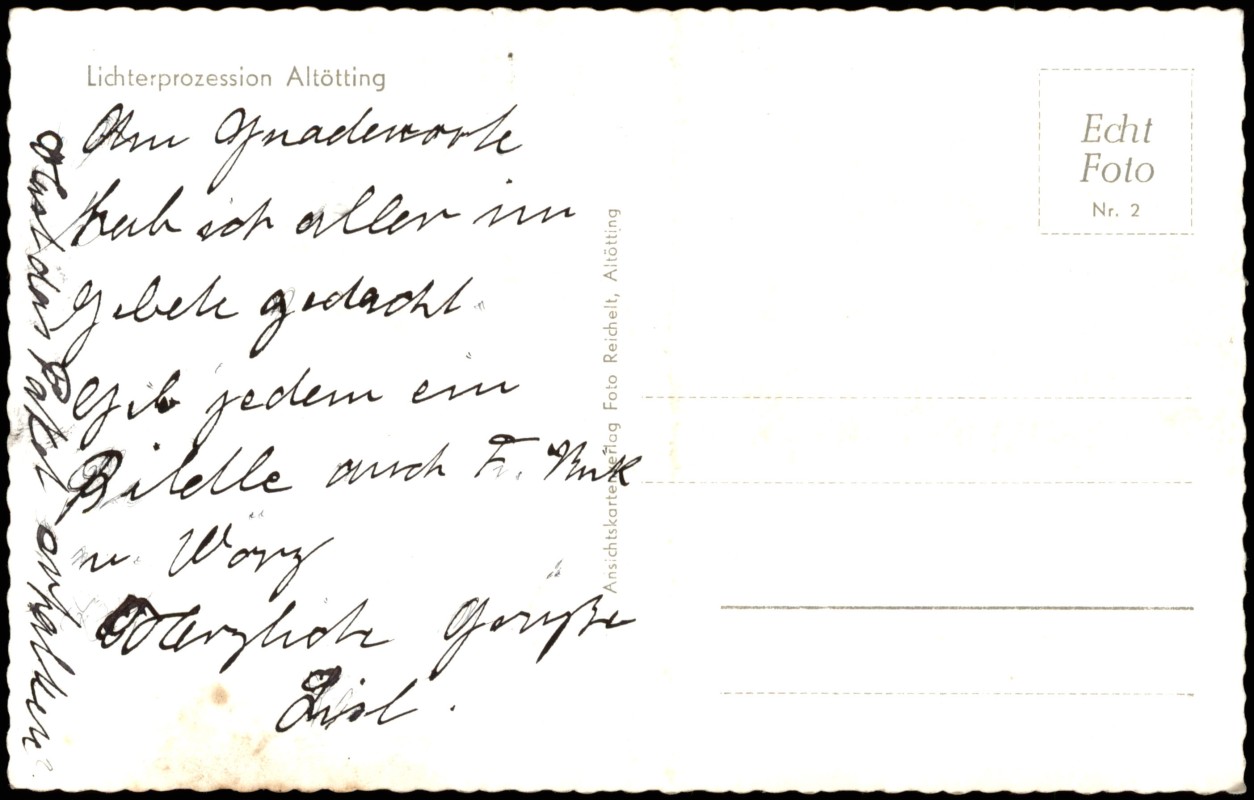 Lichterprozession Altötting
Am Gnadenorte
hab ich aller im
Gebete gedacht
Gib jedem ein
Bildle auch Fr.
u. Wörz
Herzliche Grüße
Lisl.
Hast das Paket erhalten?
Ansichtskartenverlag Foto Reichelt, Altötting
Echt
Foto
Nr. 2